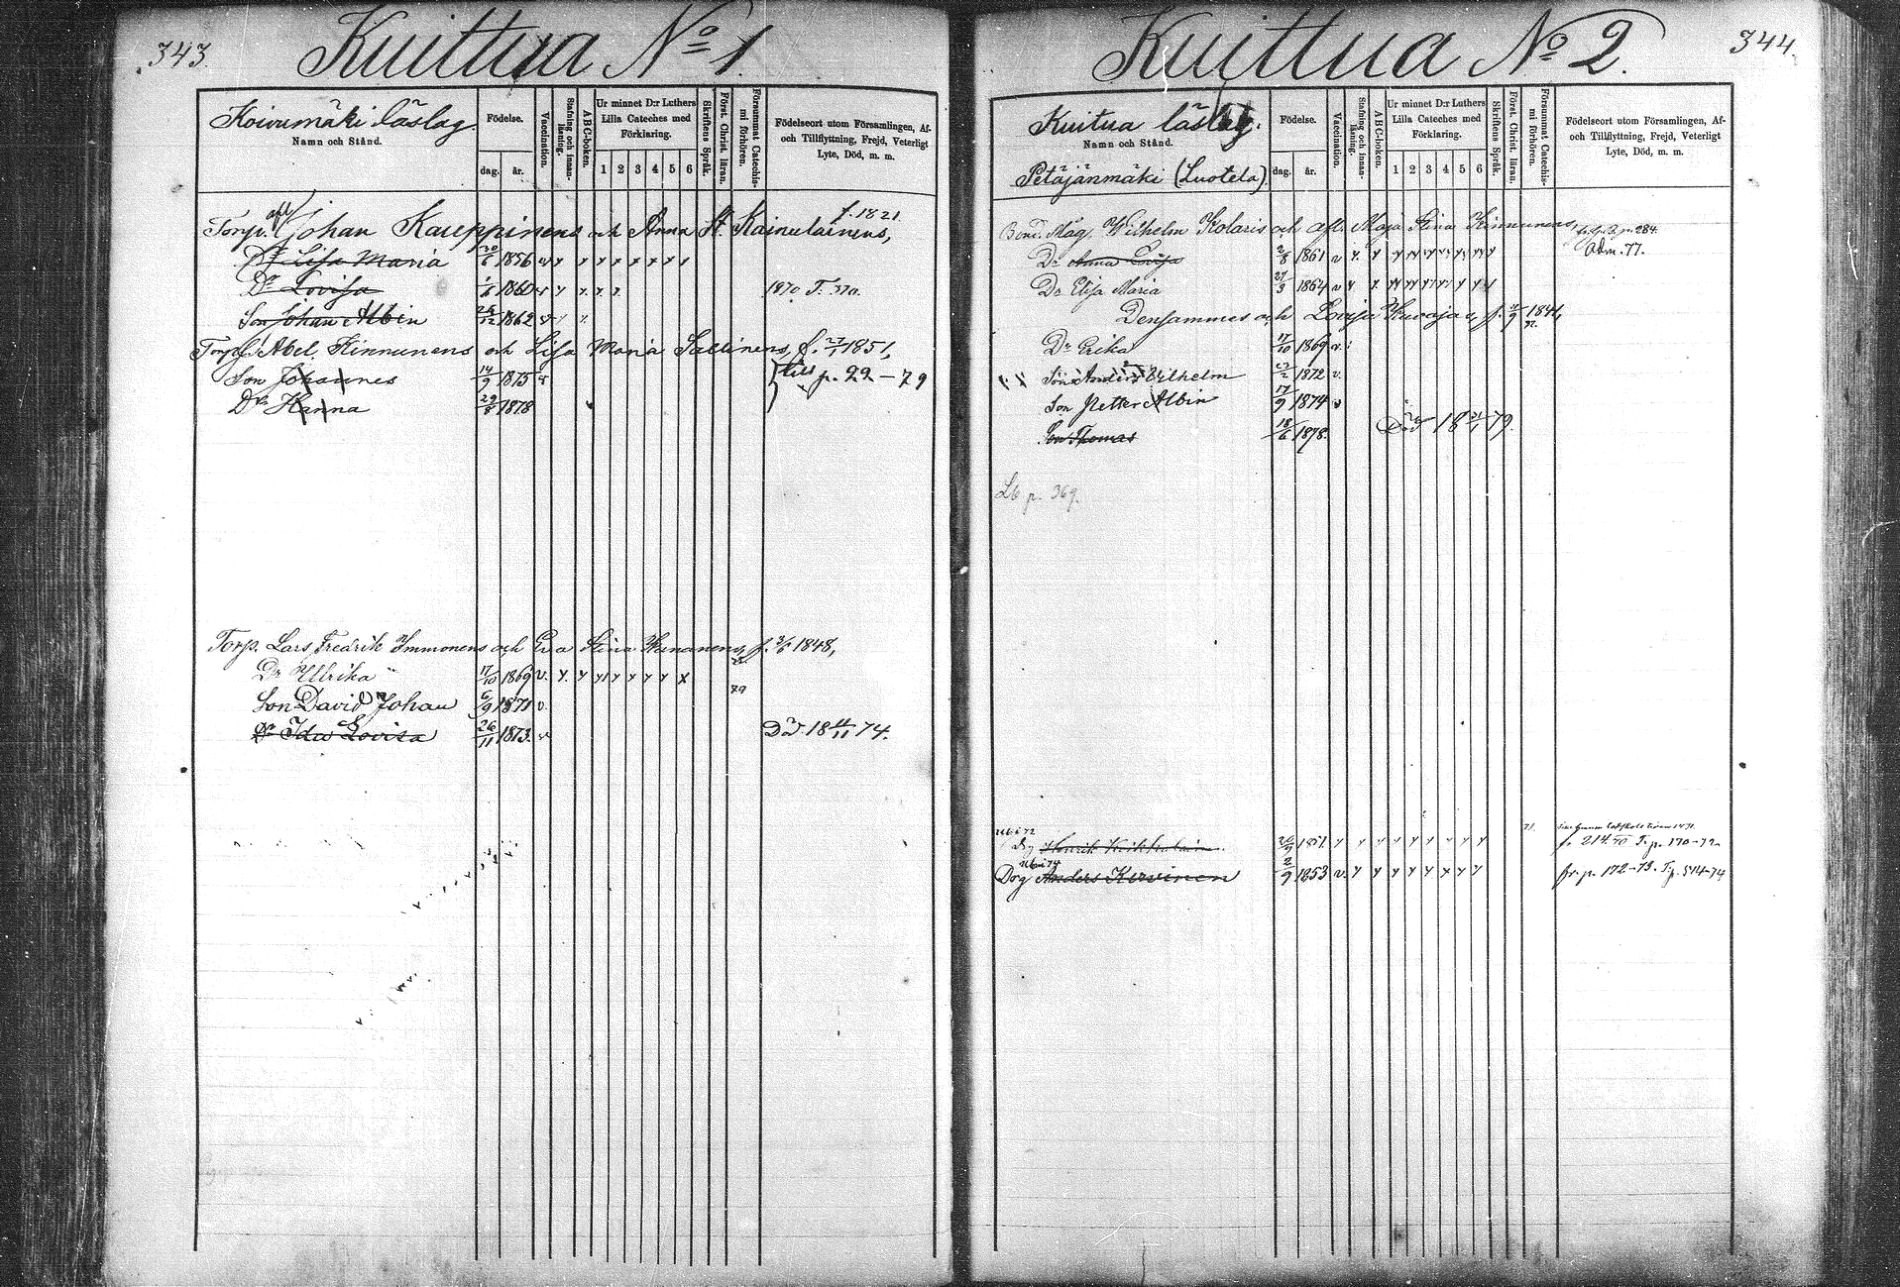 343.
Kuittua No 1.
Koivumäki läslag.
Namn och Stånd.
Födelse.
dag.
år.
Vaccination.
Stafning och innan-läsning.
ABC-boken.
Ur minnet D:r Luthers
Lilla Cateches med
Förklaring.
1 2 3 4 5 6
Skriftens Språk.
Först. Christ. läran.
Försummat Catechis-
mi förhören.
Födelseort utom Församlingen, Af-
och Tillflyttning, Frejd, Veterligt
Lyte, Död, m. m.
Torp. afl. Johan Kauppinens och Anna St. Kainulainens, f. 1821.
Dr Lisa Maria 30/6 1856
Dr Lovisa 1/6 1860 1870 T. 370.
Son Johan Albin 25/12 1862
Torp. Abel Kinnunens och Lisa Maria Sallinens, f. 27/1 1851,
Son Johannes 14/9 1875 v till p. 22-79
Dr Hanna 29/8 1878
Torp. Lars Fredrik Immonens och Eva Stina f. 3/6 1848,
Dr Ulrika 17/10 1869 v.
Son David Johan 6/9 1871 v.
79
Dr Ida Lovisa 26/11 1873. v Död. 18 11/11 74.
344.
Kuittua No 2.
Kuitua läslag.
Namn och Stånd.
Petäjänmäki (Luotela).
Födelse.
dag.
år.
Vaccination.
Stafning och innan-läsning.
ABC-boken.
Ur minnet D:r Luthers
Lilla Cateches med
Förklaring.
1 2 3 4 5 6
Skriftens Språk.
Först. Christ. läran.
Försummat Catechis-
mi förhören.
Födelseort utom Församlingen, Af-
och Tillflyttning, Frejd, Veterligt
Lyte, Död, m. m.
Mag. Wilhelm Kolaris och afl. Maja Stina Kinnunens, p. 284.
Dr Anna Lovisa 2/8 1861 v
Adm. 77.
Dr Elisa Maria 27/3 1864 v
Densammes och Lovisa f. 1841,
Dr Erika 17/10 1869 v.
Son Anders Wilhelm 1872 v.
Son Petter Albin 17/9 1874 v
Son Thomas 18/6 1878. Död 18 31/1 79.
Lb p. 369.
Utbi 72
Henrik 1851 T. p. 170-72
Utbi 74
Drg Anders Kervinen 2/9 1853 v. fr. p. 172-73. T. p. 574-74